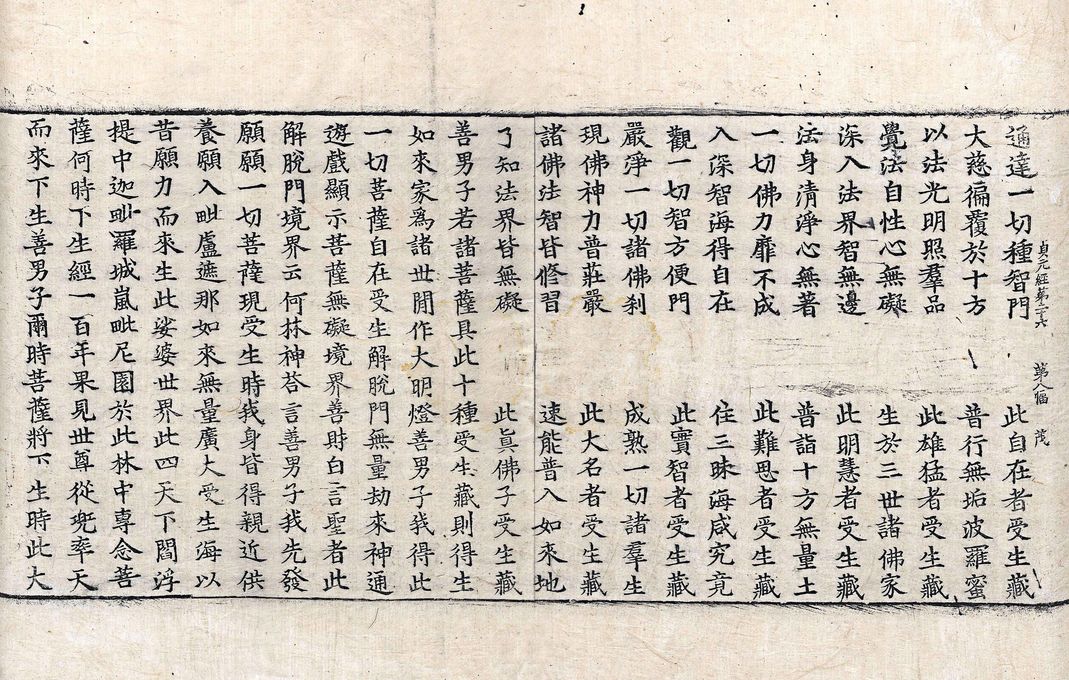 通達一切種智門　此自在者受生藏
貞元經第二十六　第八幅　茂
大慈徧覆於十方　普行無垢波羅蜜
以法光明照羣品　此雄猛者受生藏
覺法自性心無礙　生於三世諸佛家
深入法界智無邊　此明慧者受生藏
法身清淨心無著　普詣十方無量土
一切佛力靡不成　此難思者受生藏
入深智海得自在　住三昧海咸究竟
觀一切智方便門　此實智者受生藏
嚴淨一切諸佛刹　成熟一切諸羣生
現佛神力普莊嚴　此大名者受生藏
諸佛法智皆修習　速能普入如來地
了知法界皆無礙　此眞佛子受生藏
善男子若諸菩薩具此十種受生藏則得生
如來家爲諸世間作大明燈善男子我得此
一切菩薩自在受生解脫門無量劫來神通
遊戲顯示菩薩無礙境界善財白言聖者此
解脫門境界云何林神荅言善男子我先發
願願一切菩薩現受生時我身皆得親近供
養願入毗盧遮那如來無量廣大受生海以
昔願力而來生此娑婆世界此四天下閻浮
提中迦毗羅城嵐毗尼園於此林中專念菩
薩何時下生經一百年果見世尊從兜率天
而來下生善男子爾時菩薩將下生時此大